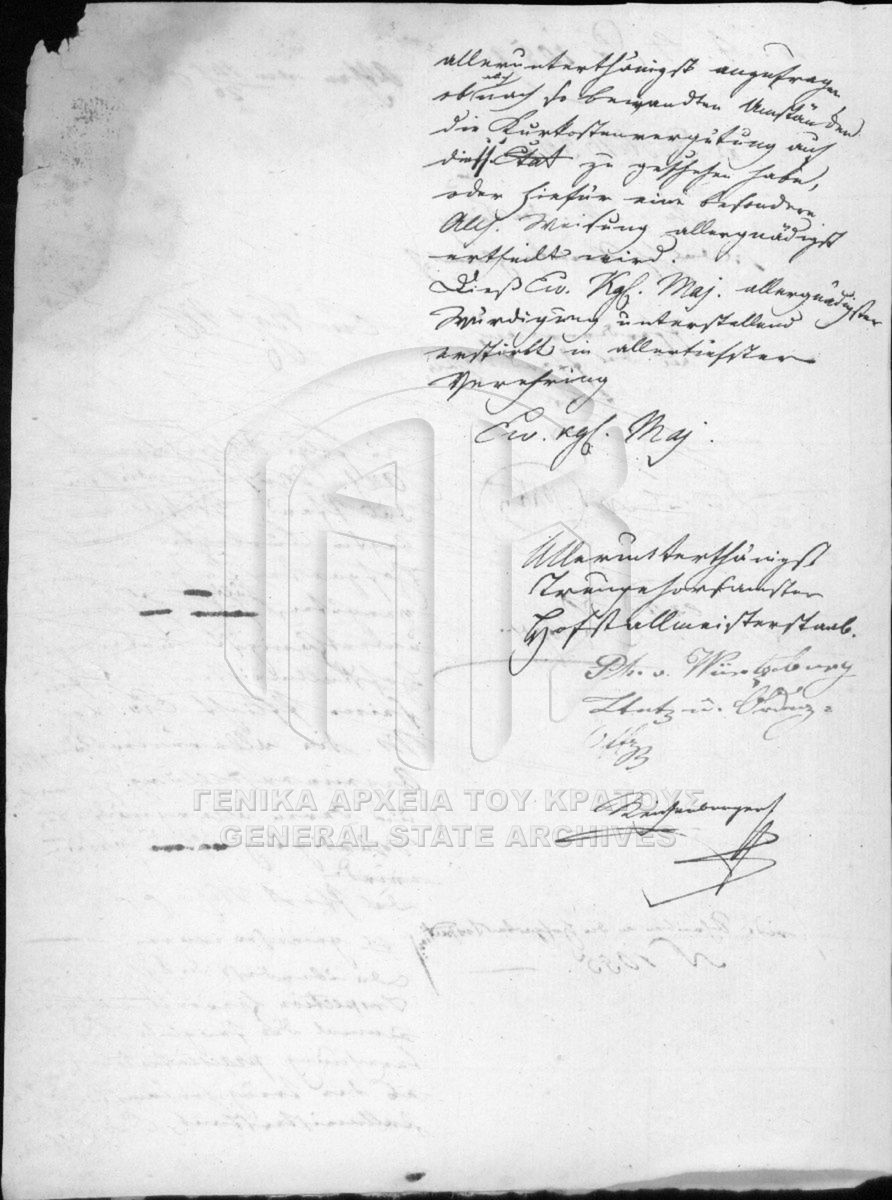 allerunterthänigst anzufragen
ob nach so bewandten Umständen
die Kurkostenvergütung auf
dieß Etat zu geschehen habe,
oder hiefür eine besondere
Allh. Weisung allergnädigst
ertheilt wird.
Dieß Ew. Kgl. Maj. allergnädigster
Würdigung unterstellend
erstirbt in allertiefster
Verehrung
Ew. kgl. Maj.
Allerunterthänigst
Treugehorsamster
Hofstallmeisterstaab.
v. Würtzburg
u.
Reichenberger
ΓΕΝΙΚΑ ΑΡΧΕΙΑ ΤΟΥ ΚΡΑΤΟΥΣ
GENERAL STATE ARCHIVES